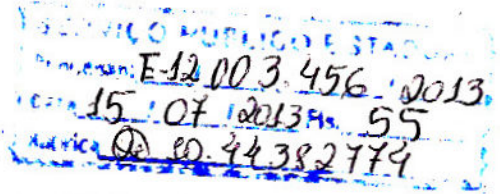 SERVIÇO PÚBLICO ESTADUAL
Processo nº E-12 003.456 / 2013
Data 15 / 07 / 2013 Fls. 55
Rubrica 50.44382774